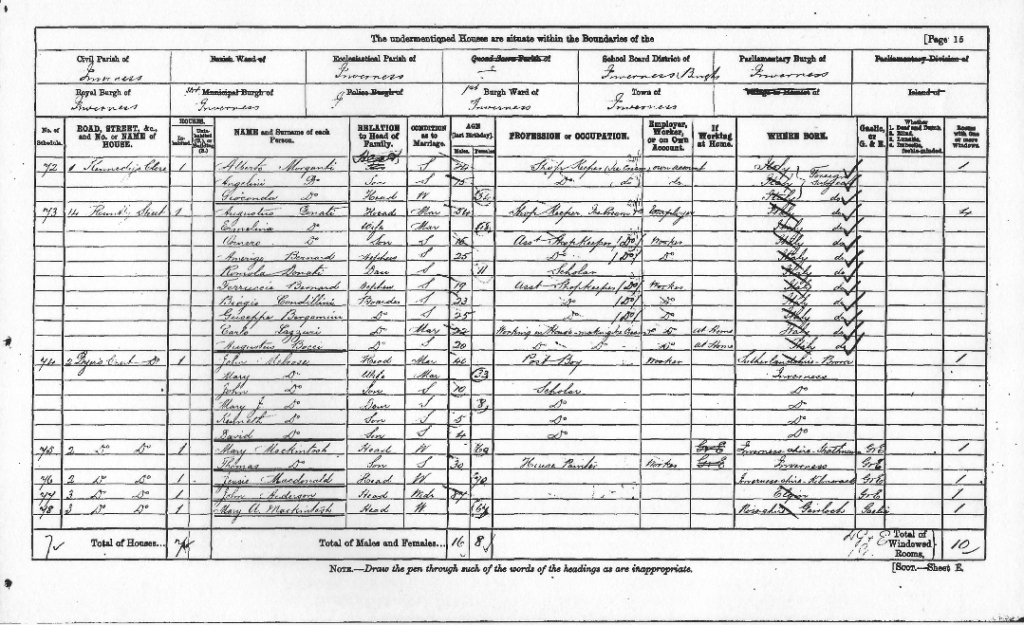 The undermentioned Houses are situate within the Boundaries of the [Page 15
Civil Parish of Inverness
Parish Ward of
Ecclesiastical Parish of Inverness
Quoad Sacra Parish of
School Board District of Inverness Burgh
Parliamentary Burgh of Inverness
Parliamentary Division of
Royal Burgh of Inverness
Municipal Burgh of Inverness
Police Burgh of
1st Burgh Ward of Inverness
Town of Inverness
Village or Hamlet of
Island of
No. of Schedule. ROAD, STREET, &c., and No. or NAME of HOUSE. HOUSES. NAME and Surname of each Person. RELATION to Head of Family. CONDITION as to Marriage. AGE (last Birthday). Males. Females. PROFESSION or OCCUPATION. Employer, Worker, or on Own Account. If Working at Home. WHERE BORN. Gaelic, or G. & E. Whether 1. Deaf and Dumb. 2. Blind. 3. Lunatic. 4. Imbecile, feeble-minded. Rooms with One or more Windows.
72 1 Alberto Morganti S Shop Keeper own account Italy Foreign Subject 1
Do Son S 15 Do do do Italy
Gioconda Do Head W 32 Italy do
73 14 Street 1 Augustus Donati Head Mar Shop Keeper Ice Cream Employer Italy 4
Do Wife Mar Italy do
Do Son S 16 Asst Shop Keeper (Do) Worker Italy do
Amerigo Bernard Nephew S 25 Do (Do) Do Italy do
Romola Donati Daur S 11 Scholar Italy do
Ferruccio Bernard Nephew S 19 Asst Shopkeeper (Do) Worker Italy do
Biagio Boarder S 23 Do (Do) Do Italy do
Giuseppe Do S 25 Do (Do) Do Italy do
Carlo Do Mar 22 Working in House making Ice Cream Do at Home Italy do
Augustus Bocci Do S 20 Do Do Do at Home Italy do
74 2 1 John Melrose Head Mar 40 Post Boy Worker Sutherlandshire 1
Mary Do Wife Mar 33 Inverness
John Do Son S 10 Scholar Do
Mary J Do Daur S 8 Do Do
Kenneth Do Son S 5 Do Do
David Do Son S 4 Do Do
75 2 Do Do 1 Mary Mackintosh Head W 69 G&E Inverness-shire G&E 1
Thomas Do Son S 30 House Painter Worker G&E Inverness G&E
76 2 Do Do 1 Jessie Macdonald Head W 70 Inverness-shire G&E 1
77 3 Do Do 1 John Anderson Head Elgin G&E 1
78 3 Do Do 1 Mary A. Mackintosh Head W 64 Ross-shire Gairloch Gaelic 1
7 Total of Houses... 7 Total of Males and Females... 16 8 Total of Windowed Rooms, 10
NOTE.—Draw the pen through such of the words of the headings as are inappropriate. [SCOT.—Sheet E.